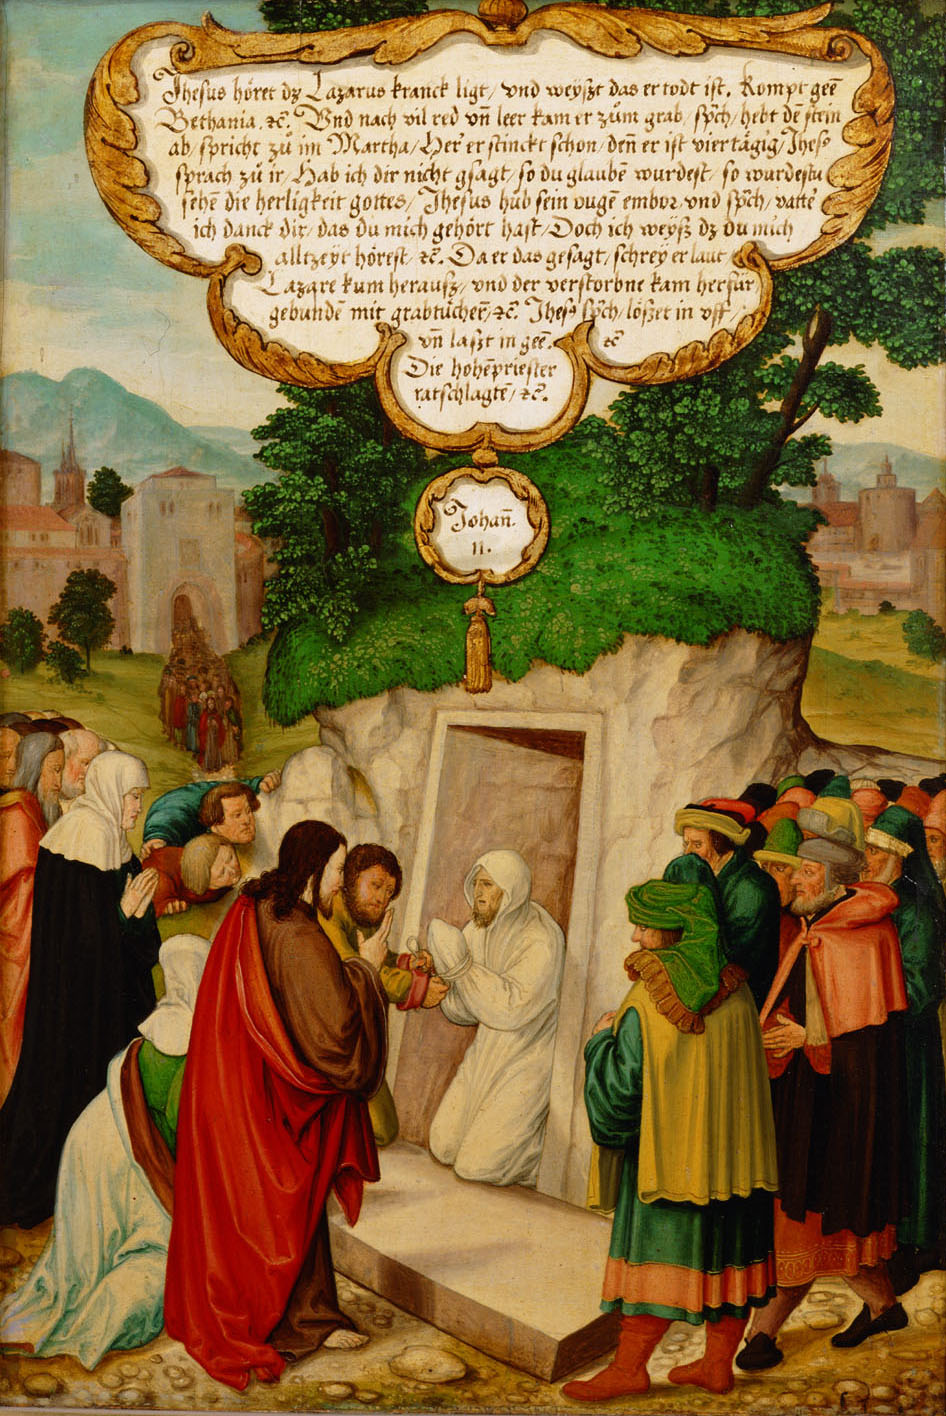 Jhesus höret dz Lazarus kranck ligt/ vnd weyszt das er todt ist. Kompt geē
Bethania. ꝛc̄. Vnd nach vil red vn̄ leer kam er zům grab/ spͬch/ hebt dē stein
ab/ spricht zů im Martha/ Her' er stinckt schon/ den̄ er ist viertägig/ Jhesꝰ
sprach zů ir/ Hab ich dir nicht gsagt/ so du glaubē wurdest/ so wurdestu
sehē die herligkeit gottes/ Jhesus hůb sein augē emboꝛ vnd spͬch/ vatte'
ich danck dir/ das du mich gehört hast/ Doch ich weysz dz du mich
alltzeyt hörest/ ꝛc̄. Da er das gesagt/ schrey er laut
Lazare kum herausz/ vnd der verstorbne kam herfür/
gebundē mit grabtücher̄/ ꝛc̄. Jhesꝰ spͬch/ löszet in vff/
vn̄ laszt in geē. ꝛc̄
Die hohēpriester
ratschlagtē/ ꝛc̄.
Johan̄.
11.